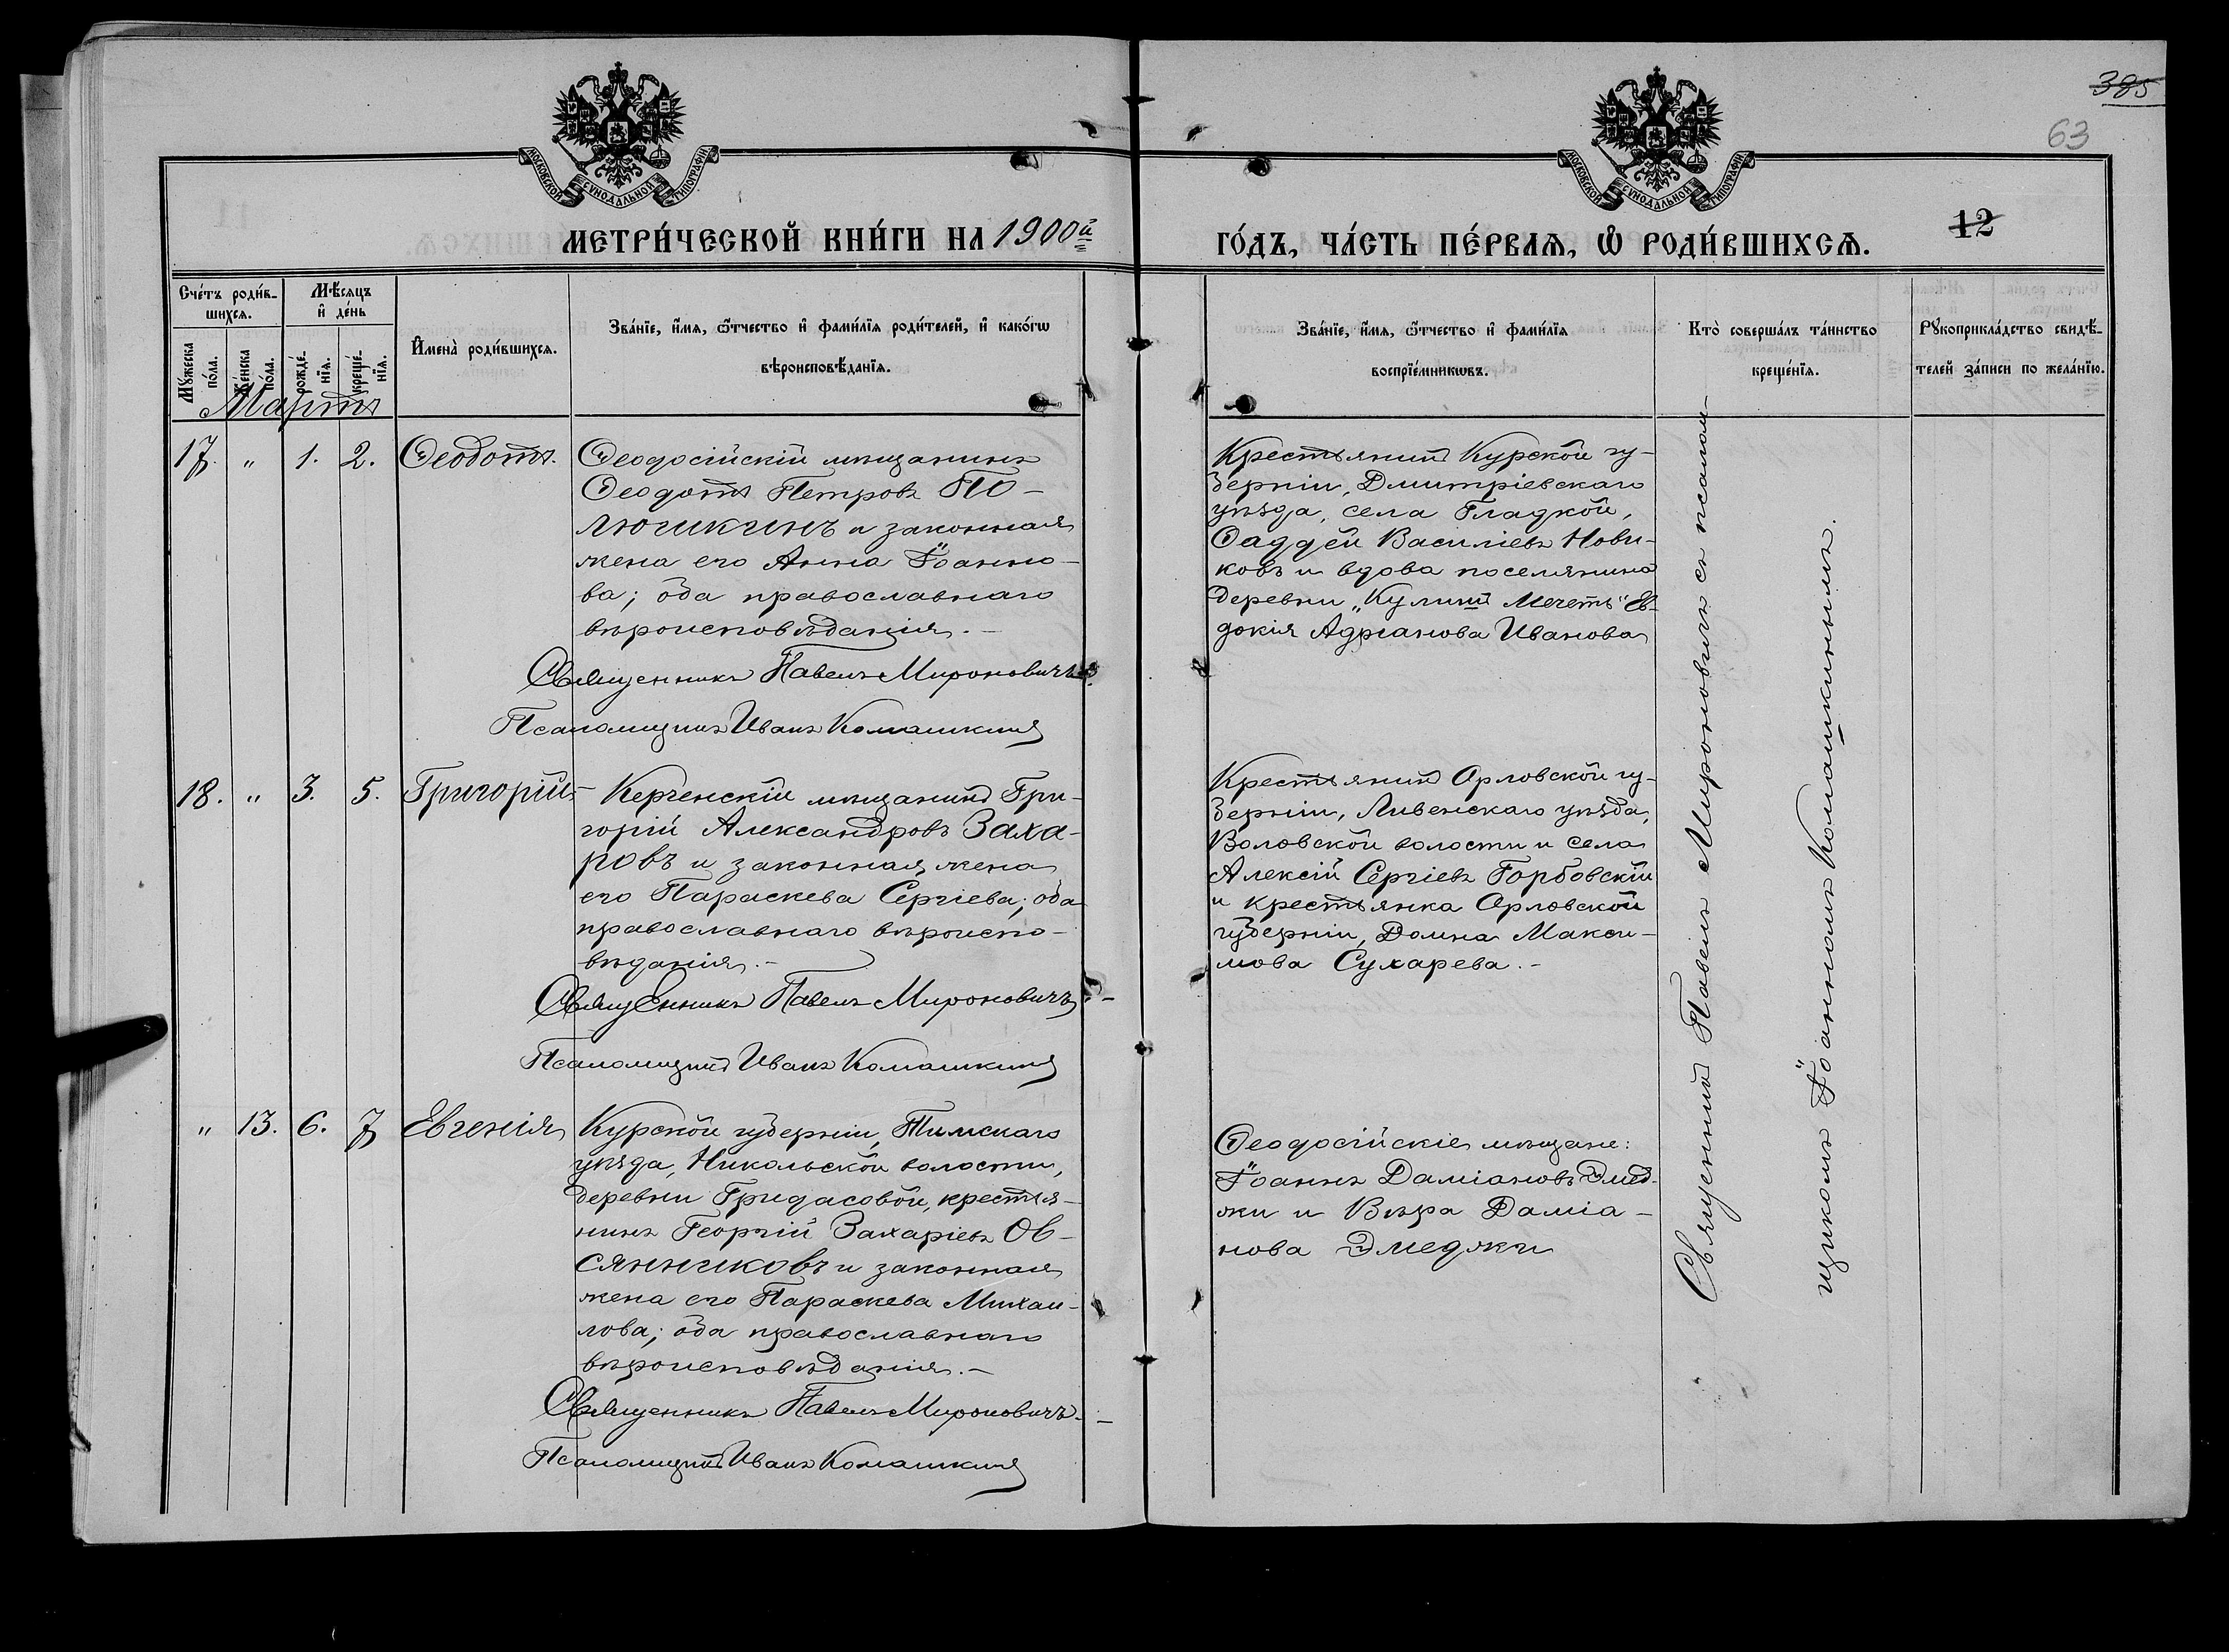 385
63
МОСКОВСКОЙ СѴНОДАЛЬНОЙ ТИПОГРАФІИ
МОСКОВСКОЙ СѴНОДАЛЬНОЙ ТИПОГРАФІИ
МЕТРИ́ЧЕСКОЙ КНИ́ГИ НА 1900й
ГО́ДЪ, ЧА́СТЬ ПЕ́РВАѦ, Ѡ҆ РОДИ́ВШИХСѦ.
12
Сче́тъ роди́в-
шихсѧ.
Мѣ́сѧцъ
и҆ де́нь
Мꙋ́жеска
по́ла.
Же́нска
по́ла.
рожде́-
нїѧ.
креще́-
нїѧ.
И҆мена̀ роди́вшихсѧ.
Зва́нїе, и҆́мѧ, ѻ҆́тчество и҆ фами́лїѧ роди́телей, и҆ како́гѡ
вѣроисповѣ́данїѧ.
Зва́нїе, и҆́мѧ, ѻ҆́тчество и҆ фами́лїѧ
воспрїе́мникѡвъ.
Кто̀ соверша́лъ та́инство
креще́нїѧ.
Рꙋкоприкла́дство свидѣ́-
телей за́писи по жела́нїю.
Мартъ
17. " 1. 2. Ѳеодотъ.
Ѳеодосійскій мѣщанинъ
Ѳеодотъ Петровъ По-
люшкинъ и законная
жена его Анна Іоанно-
ва; оба православнаго
вѣроисповѣданія.-
Священникъ Павелъ Мироновичъ.
Псаломщикъ Иванъ Комашкинъ
Крестьянинъ Курской гу-
берніи, Дмитріевскаго
уѣзда, села Гладкой,
Ѳаддей Василіевъ Нови-
ковъ и вдова поселянина
деревни „Кулич Мечеть" Ев-
докія Адріанова Иванова
18. " 3. 5. Григорій-
Керченскій мѣщанинъ Гри-
горій Александровъ Заха-
ровъ и законная жена
его Параскева Сергіева; оба
православнаго вѣроиспо-
вѣданія.-
Священникъ Павелъ Мироновичъ.-
Псаломщикъ Иванъ Комашкинъ
Крестьянинъ Орловской гу-
берніи, Ливенскаго уѣзда,
Воловской волости и села
Алексій Сергіевъ Горбовскій
и крестьянка Орловской
губерніи, Домна Макси-
мова Сухарева.-
" 13. 6. 7 Евгенія
Курской губерніи, Тимскаго
уѣзда, Никольской волости,
деревни Гридасовой, крестья-
нинъ Георгій Захаріевъ Ов-
сянниковъ и законная
жена его Параскева Михаи-
лова; оба православнаго
вѣроисповѣданія.-
Священникъ Павелъ Мироновичъ.-
Псаломщикъ Иванъ Комашкинъ
Ѳеодосійскіе мѣщане:
Іоаннъ Даміановъ Эмед-
жи и Вѣра Даміа-
нова Эмеджи
Священникъ Павелъ Мироновичъ съ псалом-
щикомъ Іоанномъ Комашкинымъ.